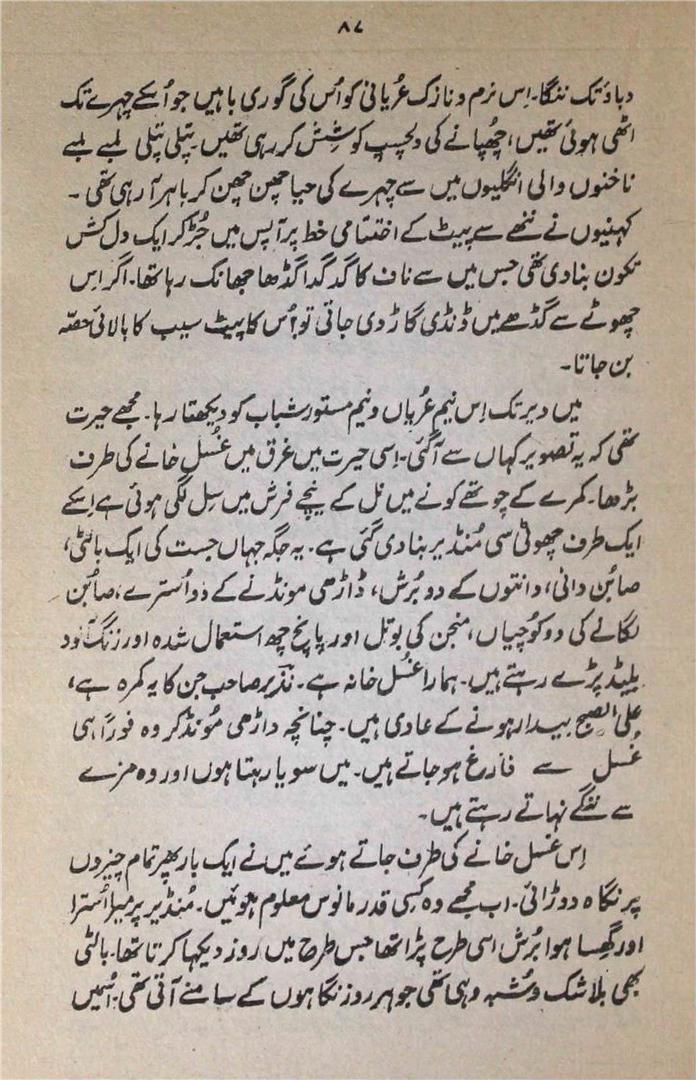 ۸۷
دباؤ تک ننگا۔ اِس نرم و نازک عُریانی کو اُس کی گوری باہیں جو اُسکے چہرے تک
اٹھی ہوئی تھیں، چھُپانے کی دلچسپ کوشِش کر رہی تھیں۔ پتلی پتلی لمبے لمبے
ناخنوں والی انگلیوں میں سے چہرے کی حیا چھن چھن کر باہر آ رہی تھی۔
کہنیوں نے ننھے سے پیٹ کے اختتامی خط پر آپس میں جُڑ کر ایک دل کش
تکون بنا دی تھی جس میں سے ناف کا گدگدا گڈھا جھانک رہا تھا۔ اگر اِس
چھوٹے سے گڈھے میں ڈنڈی گاڑ دی جاتی تو اُس کا پیٹ سیب کا بالائی حصّہ
بن جاتا۔
میں دیر تک اِس نیم عُریاں و نیم مستور شباب کو دیکھتا رہا۔ مجھے حیرت
تھی کہ یہ تصویر کہاں سے آگئی۔ اِسی حیرت میں غرق میں غُسل خانے کی طرف
بڑھا۔ کمرے کے چوتھے کونے میں نل کے نیچے فرش میں سِل لگی ہوئی ہے اِسکے
ایک طرف چھوٹی سی مُنڈیر بنا دی گئی ہے۔ یہ جگہ جہاں جست کی ایک بالٹی،
صابُن دانی، دانتوں کے دو بُرش، ڈاڑھی مونڈنے کے دو اُسترے، صابُن
لگانے کی دو کوچیاں، منجن کی بوتل اور پانچ چھ استعمال شدہ اور زنگ آلود
بلیڈ پڑے رہتے ہیں۔ ہمارا غُسل خانہ ہے۔ نذیر صاحب جن کا یہ کمرہ ہے،
علی الصبح بیدار ہونے کے عادی ہیں۔ چنانچہ داڑھی مُونڈ کر وہ فوراً ہی
غُسل سے فارغ ہو جاتے ہیں۔ میں سویا رہتا ہوں اور وہ مزے
سے ننگے نہاتے رہتے ہیں۔
اِس غسل خانے کی طرف جاتے ہوئے میں نے ایک بار پھر تمام چیزوں
پر نگاہ دوڑائی۔ اب مجھے وہ کسِی قدر مانوس معلوم ہوئیں۔ مُنڈیر پر میرا اُسترا
اور گھِسا ہوا بُرش اسی طرح پڑا تھا جس طرح میں روز دیکھا کرتا تھا۔ بالٹی
بھی بلا شک و شُبہ وہی تھی جو ہر روز نگاہوں کے سامنے آتی تھی۔ اُس میں